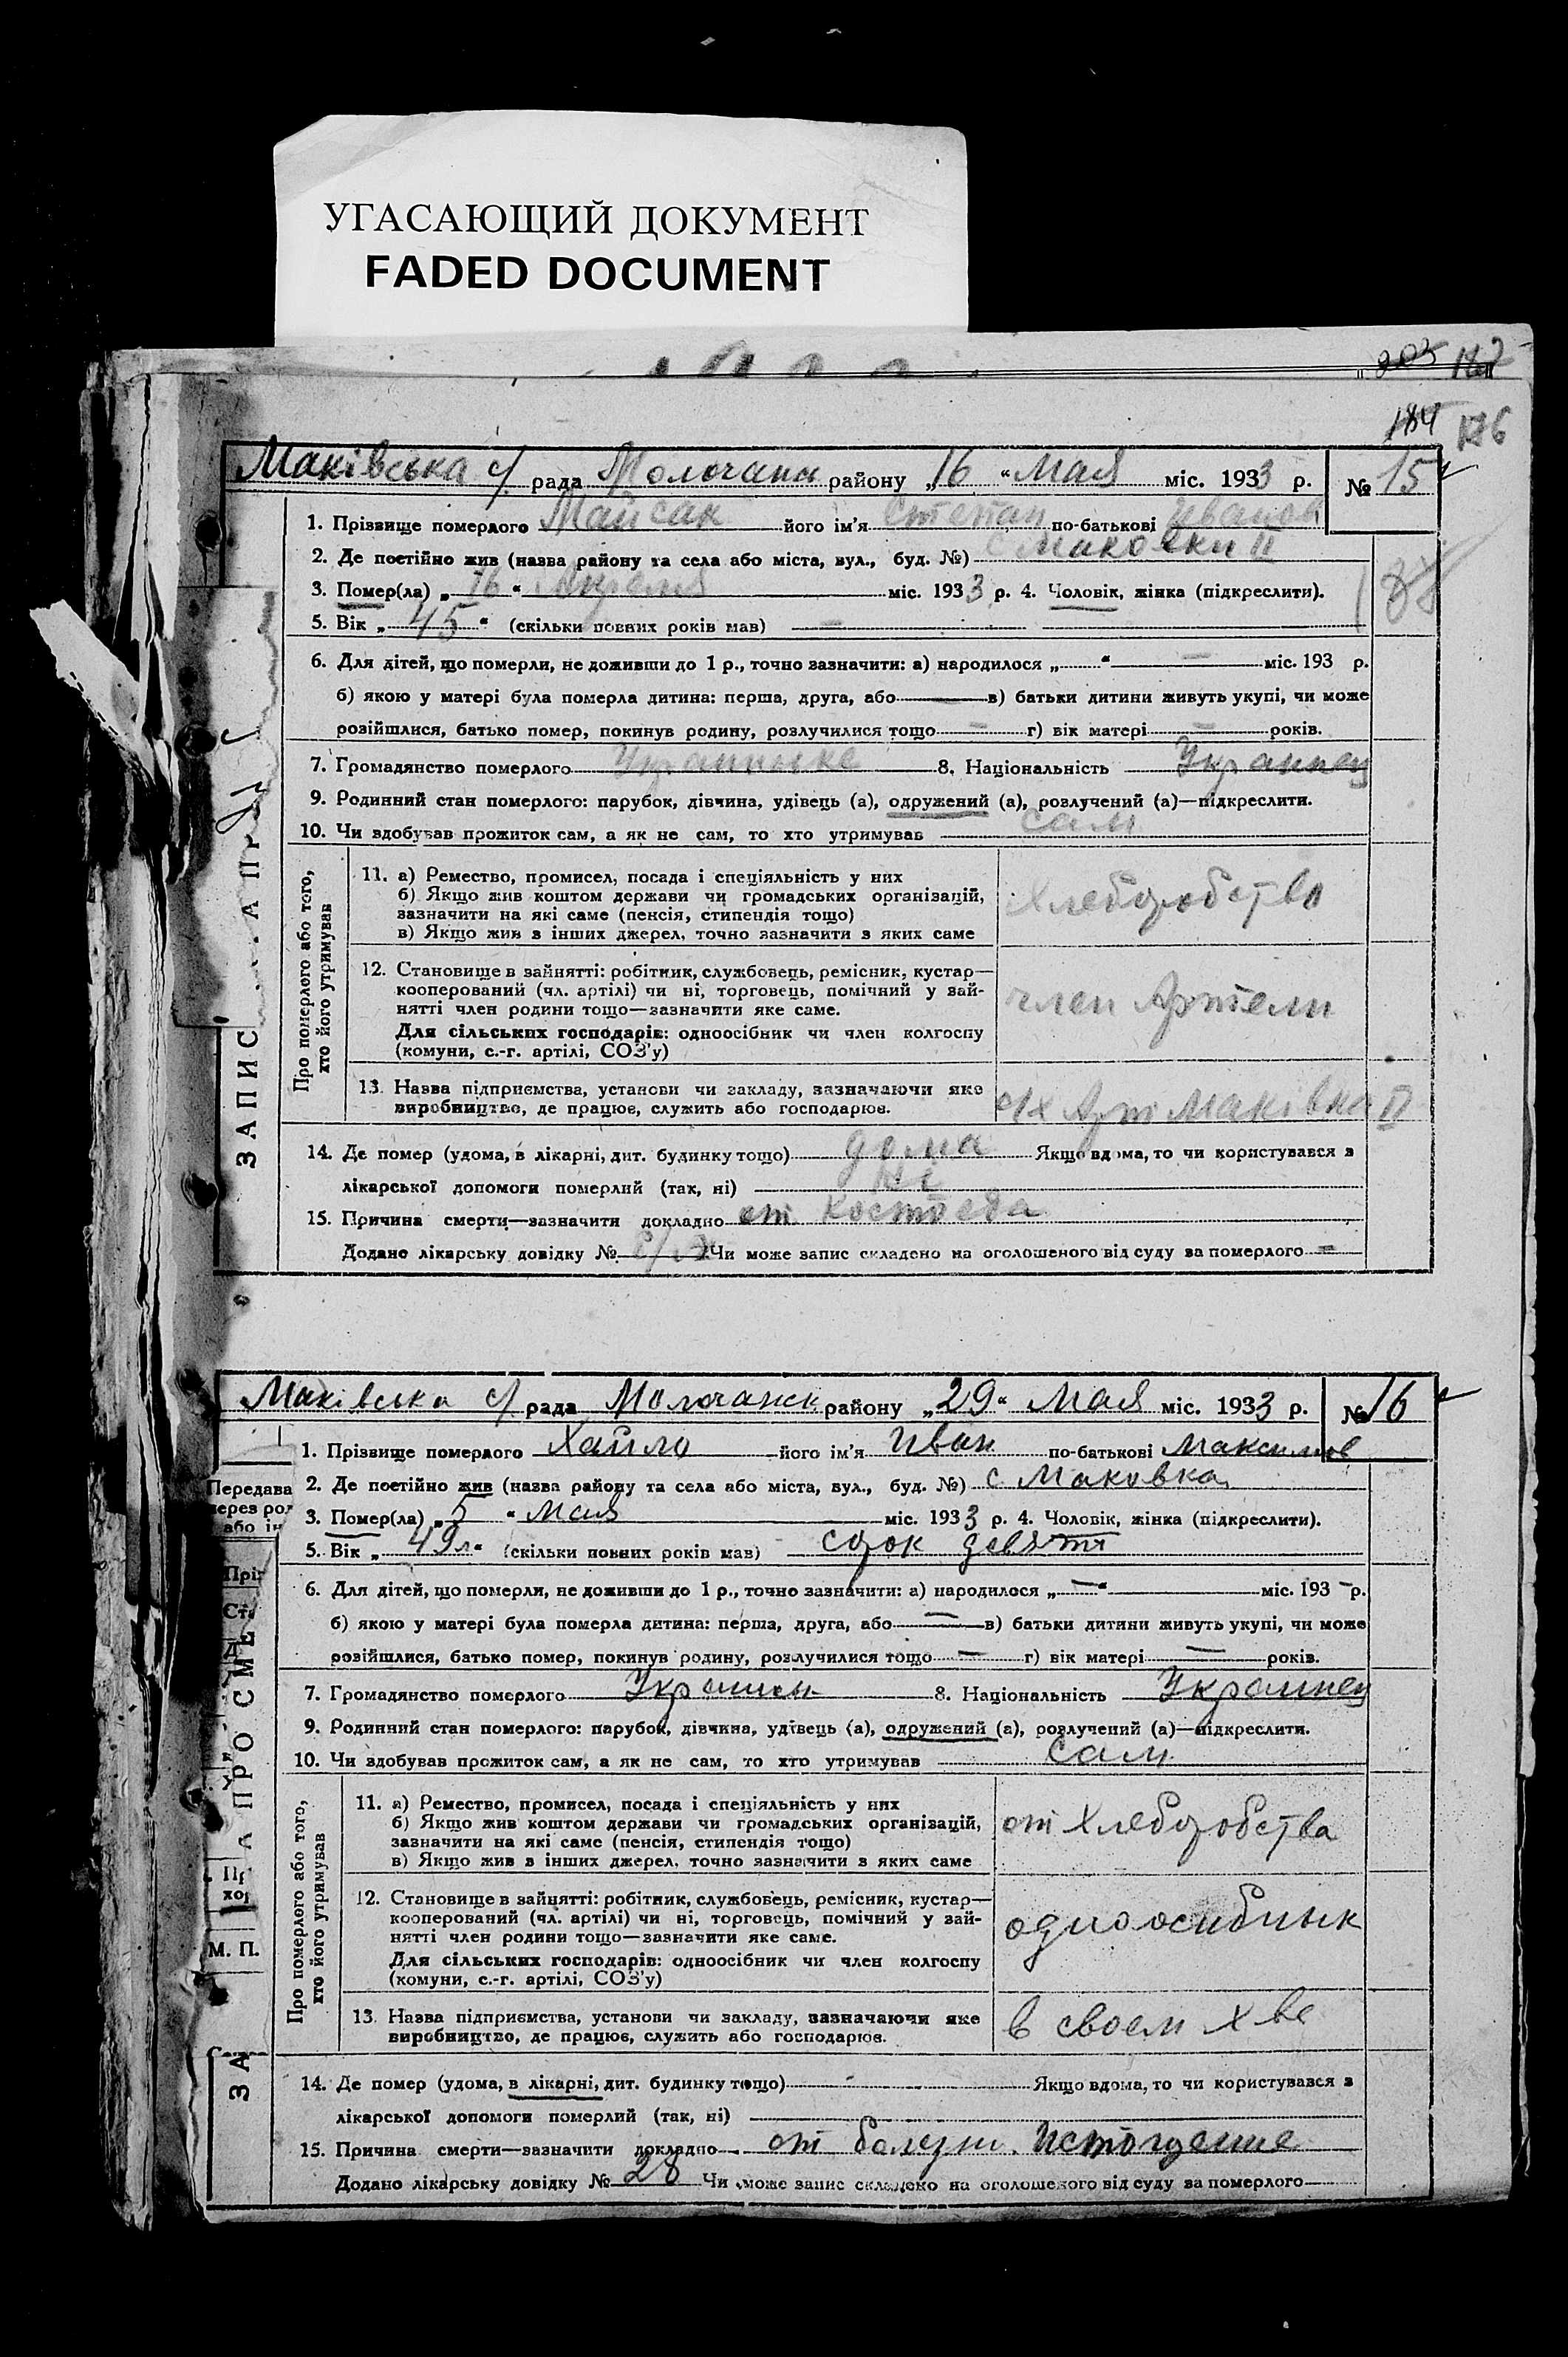 УГАСАЮЩИЙ ДОКУМЕНТ
FADED DOCUMENT
203 182
184 176
Маківська с/ рада Молочанск району „16“ Мая міс. 1933 р. № 15
1. Прізвище померлого Майсак його ім'я Степан по-батькові Иванов
2. Де постійно жив (назва району та села або міста, вул., буд. №) с Маковки II
3. Помер(ла) „16“ Апреля міс. 1933 р. 4. Чоловік, жінка (підкреслити).
5. Вік „45“ (скільки повних років мав) —
6. Для дітей, що померли, не доживши до 1 р., точно зазначити: а) народилося „ “ — міс. 193 р.
б) якою у матері була померла дитина: перша, друга, або — в) батьки дитини живуть укупі, чи може
розійшлися, батько помер, покинув родину, розлучилися тощо — г) вік матері — років.
7. Громадянство померлого 8. Національність Украинец
9. Родинний стан померлого: парубок, дівчина, удівець (а), одружений (а), розлучений (а)—підкреслити.
10. Чи здобував прожиток сам, а як не сам, то хто утримував сам
Про померлого або того,
хто його утримував
11. а) Ремество, промисел, посада і спеціяльність у них
б) Якщо жив коштом держави чи громадських організацій,
зазначити на які саме (пенсія, стипендія тощо)
в) Якщо жив з інших джерел, точно зазначити з яких саме
Хлеборобство
12. Становище в зайнятті: робітник, службовець, ремісник, кустар—
кооперований (чл. артілі) чи ні, торговець, помічний у зай-
нятті член родини тощо—зазначити яке саме.
Для сільських господарів: одноосібник чи член колгоспу
(комуни, с.-г. артілі, СОЗ'у)
член Артели
13. Назва підприємства, установи чи закладу, зазначаючи яке
виробництво, де працює, служить або господарює.
с/х Арт Маківка II
14. Де помер (удома, в лікарні, дит. будинку тощо) дома Якщо вдома, то чи користувався з
лікарської допомоги померлий (так, ні) ні
15. Причина смерти—зазначити докладно от костоеда
Додано лікарську довідку № Чи може запис складено на оголошеного від суду за померлого —
ЗАПИС
Маківська с/ рада Молочанск району „29“ Мая міс. 1933 р. № 16
1. Прізвище померлого Хайло його ім'я Иван по-батькові Максимов
2. Де постійно жив (назва району та села або міста, вул., буд. №) с Маковка
3. Помер(ла) „5“ Мая міс. 1933 р. 4. Чоловік, жінка (підкреслити).
5. Вік „49 л“ (скільки повних років мав) сорок девять
6. Для дітей, що померли, не доживши до 1 р., точно зазначити: а) народилося „—“ міс. 193 – р.
б) якою у матері була померла дитина: перша, друга, або — в) батьки дитини живуть укупі, чи може
розійшлися, батько помер, покинув родину, розлучилися тощо — г) вік матері — років.
7. Громадянство померлого 8. Національність Украинец
9. Родинний стан померлого: парубок, дівчина, удівець (а), одружений (а), розлучений (а)—підкреслити.
10. Чи здобував прожиток сам, а як не сам, то хто утримував сам
Про померлого або того,
хто його утримував
11. а) Ремество, промисел, посада і спеціяльність у них
б) Якщо жив коштом держави чи громадських організацій,
зазначити на які саме (пенсія, стипендія тощо)
в) Якщо жив з інших джерел, точно зазначити з яких саме
от хлеборобства
12. Становище в зайнятті: робітник, службовець, ремісник, кустар—
кооперований (чл. артілі) чи ні, торговець, помічний у зай-
нятті член родини тощо—зазначити яке саме.
Для сільських господарів: одноосібник чи член колгоспу
(комуни, с.-г. артілі, СОЗ'у)
одноосибнык
13. Назва підприємства, установи чи закладу, зазначаючи яке
виробництво, де працює, служить або господарює.
в своем х ве
14. Де помер (удома, в лікарні, дит. будинку тощо) Якщо вдома, то чи користувався з
лікарської допомоги померлий (так, ні)
15. Причина смерти—зазначити докладно от болезни. Истощение
Додано лікарську довідку № 28 Чи може запис складено на оголошеного від суду за померлого
Передава
або ін
М. П.
ЗА
А ПРО СМЕ